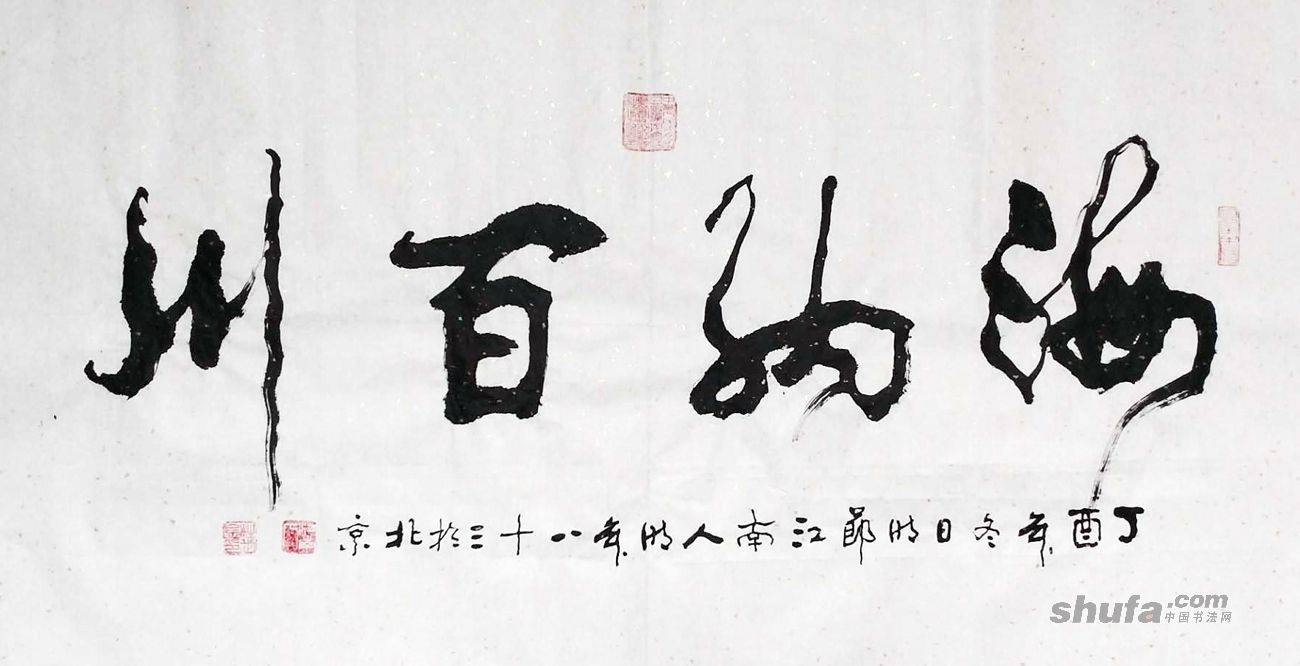 海纳百川
丁酉年冬日时节江南人时年八十三於北京
shufa.com
中国书法网